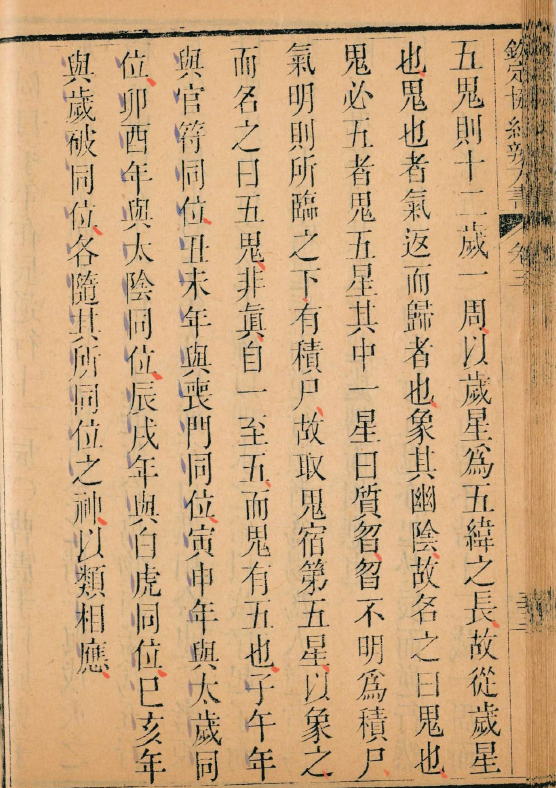 欽定協紀辨方書 卷三
五鬼則十二歲一周以歲星爲五緯之長故從歲星
也鬼也者氣返而歸者也象其幽陰故名之曰鬼也
鬼必五者鬼五星其中一星曰質㫚㫚不明爲積尸
氣明則所臨之下有積尸故取鬼宿第五星以象之
而名之曰五鬼非眞自一至五而鬼有五也子午年
與官符同位丑未年與喪門同位寅申年與太歲同
位卯酉年與太陰同位辰戌年與白虎同位巳亥年
與歲破同位各隨其所同位之神以類相應